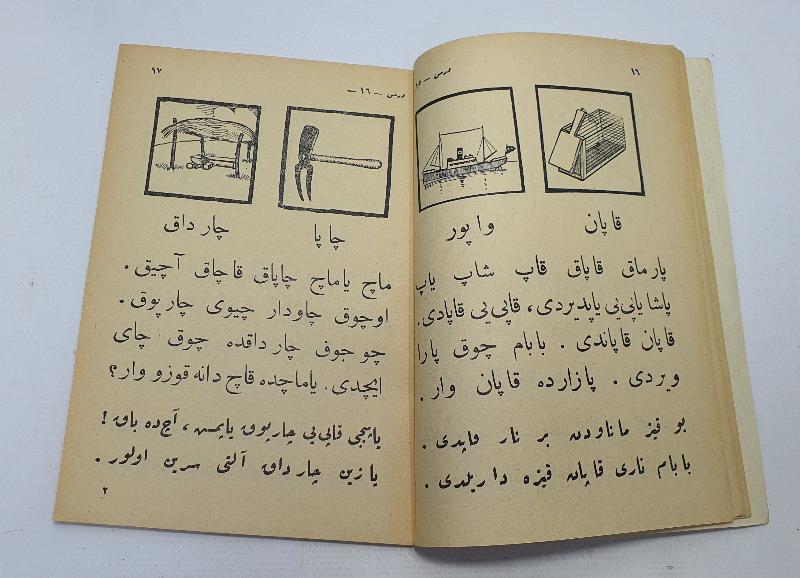 ١٦
درس – ١٥
قاپان
واپور
پارماق قاپاق قاپ شاپ ياپ
پاشا ياپى‌يى ياپديردى ، قاپى‌يى قاپادى .
قاپان قاپاندى . بابام چوق پارا
ويردى . پازارده قاپان وار .
بو قيز ماناودن بر نار قاپدى .
بابام نارى قاپان قيزه داريلدى .
٩٧
درس – ١٦ –
چاپا
چارداق
ماچ ياماچ چاپاق قاچاق آچيق .
اوچوق چاودار چيوى چارپوق .
چوجوق چارداقده چوق چاى
ايچدى . ياماچده قاچ دانه قوزو وار ؟
ياپيجى قاپى‌يى چارپوق ياپمش ، آچ ده باق !
يازين چارداق آلتى سرين اولور .
٢